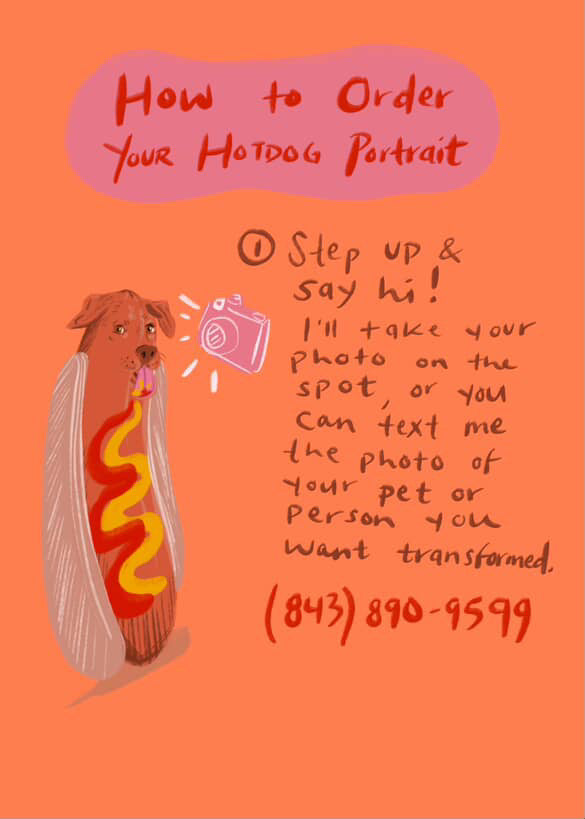 How to Order
Your HOTDOG Portrait
① Step up &
say hi!
I'll take your
photo on the
spot, or you
can text me
the photo of
your pet or
person you
want transformed.
(843) 890-9599